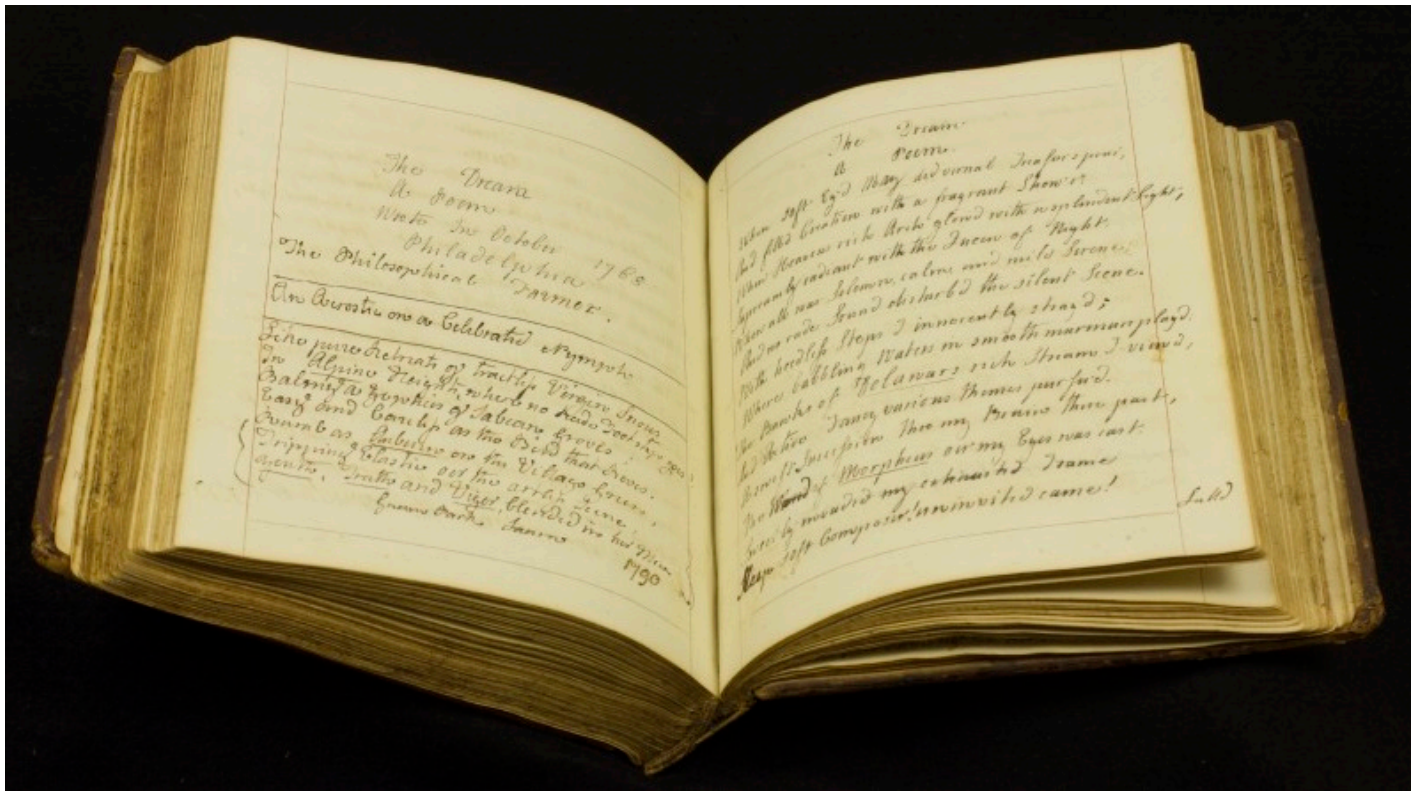 The Dream
A Poem
Wrote In October
Philadelphia 1768
The Philosophical Farmer.
An Acrostic on a Celebrated Nymph
Like pure Retreat of tractless Virgin Snow
In Alpine Heights, where no rude Footstep
Balmy as Zephirs of Sabean Groves
Easy and Careless as the Bird that Roves.
as Auburn on the Village Green,
Tripping Elastic o'er the
Truth and Vigor, blended in her Mien
Farm
1790
The Dream
A Poem.
When soft Ey'd May did vernal
And fill'd Creation with a fragrant Show'r
When Heavens rich Arch glow'd with resplendent Light,
Supreamly radiant with the Queen of Night.
When all was Solemn, calm and mild Serene,
And no rude Sound disturb'd the silent Scene.
With heedless Steps I innocently stray'd;
Where babbling Waters in smooth murmurs play'd.
The Banks of Delawars rich Stream I view'd,
And Active Fancy various themes pursu'd.
Succession thro my Brains there past,
The Wand of Morpheus on my Eyes was cast.
invaded my exhausted Frame
Sleep soft Composer! uninvited came!
Lull'd